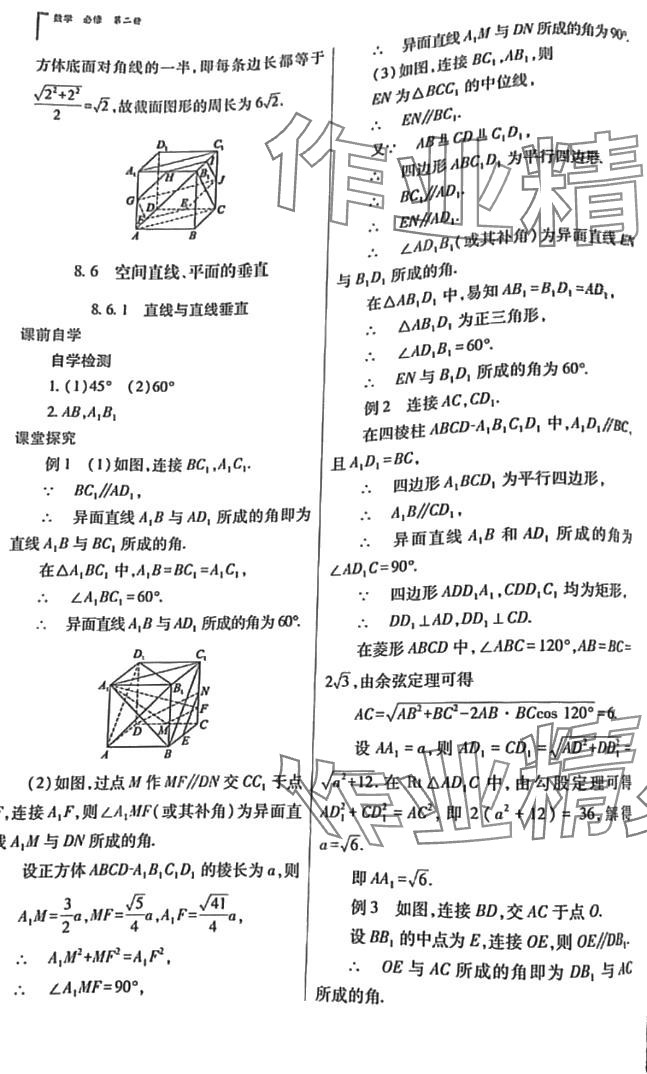 数学 必修 第二册
方体底面对角线的一半,即每条边长都等于
√(2²+2²)/2=√2,故截面图形的周长为6√2.
D₁ C₁ A₁ H B₁ I J G D E F C A B
8.6 空间直线、平面的垂直
8.6.1 直线与直线垂直
课前自学
自学检测
1.(1)45° (2)60°
2.AB,A₁B₁
课堂探究
例1 (1)如图,连接BC₁,A₁C₁.
∵ BC₁∥AD₁,
∴ 异面直线A₁B与AD₁所成的角即为
直线A₁B与BC₁所成的角.
在△A₁BC₁中,A₁B=BC₁=A₁C₁,
∴ ∠A₁BC₁=60°.
∴ 异面直线A₁B与AD₁所成的角为60°.
D₁ C₁ A₁ B₁ N F D M C E A B
(2)如图,过点M作MF∥DN交CC₁于点
F,连接A₁F,则∠A₁MF(或其补角)为异面直
线A₁M与DN所成的角.
设正方体ABCD-A₁B₁C₁D₁的棱长为a,则
A₁M=3/2a,MF=√5/4a,A₁F=√41/4a,
∴ A₁M²+MF²=A₁F²,
∴ ∠A₁MF=90°,
∴ 异面直线A₁M与DN所成的角为90°.
(3)如图,连接BC₁,AB₁,则
EN为△BCC₁的中位线,
∴ EN∥BC₁.
又∵ AB⫫CD⫫C₁D₁,
∴ 四边形ABC₁D₁为平行四边形.
∴ BC₁∥AD₁.
∴ EN∥AD₁.
∴ ∠AD₁B₁(或其补角)为异面直线EN
与B₁D₁所成的角.
在△AB₁D₁中,易知AB₁=B₁D₁=AD₁,
∴ △AB₁D₁为正三角形,
∴ ∠AD₁B₁=60°.
∴ EN与B₁D₁所成的角为60°.
例2 连接AC,CD₁.
在四棱柱ABCD-A₁B₁C₁D₁中,A₁D₁∥BC,
且A₁D₁=BC,
∴ 四边形A₁BCD₁为平行四边形,
∴ A₁B∥CD₁,
∴ 异面直线A₁B和AD₁所成的角为
∠AD₁C=90°.
∵ 四边形ADD₁A₁,CDD₁C₁均为矩形,
∴ DD₁⊥AD,DD₁⊥CD.
在菱形ABCD中,∠ABC=120°,AB=BC=
2√3,由余弦定理可得
AC=√(AB²+BC²-2AB·BCcos 120°)=6.
设AA₁=a,则AD₁=CD₁=√(AD²+DD₁²)=
√(a²+12).在Rt△AD₁C中,由勾股定理可得
AD₁²+CD₁²=AC²,即2(a²+12)=36,解得
a=√6.
即AA₁=√6.
例3 如图,连接BD,交AC于点O.
设BB₁的中点为E,连接OE,则OE∥DB₁.
∴ OE与AC所成的角即为DB₁与AC
所成的角.
作业精
作业精